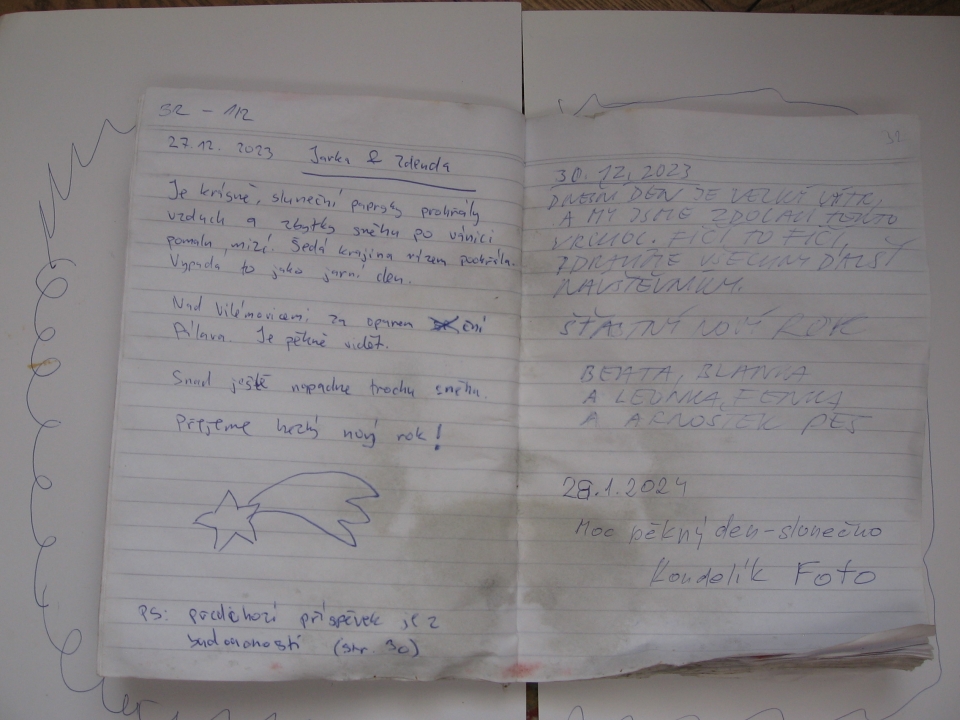 27.12. 2023 Jarka & Zdenda
Je krásně, sluneční paprsky prohřály
vzduch a zbytky sněhu po vánici
pomalu mizí. Šedá krajina rázem
Vypadá to jako jarní den.
Nad Vilémovicemi za oparem ční
Pílava. Je pěkně vidět.
Snad ještě napadne trochu sněhu.
Přejeme hezký nový rok!
PS: předchozí příspěvek je z
budoucnosti (str. 30)
32
30.12.2023
DNEŠNÍ DEN JE VELKÝ VÍTR,
A MY JSME ZDOLALI TOHOTO
VRCHOL. FIČÍ TO FIČÍ,
ZDRAVÍME VŠECHNY DALŠÍ
NÁVŠTĚVNÍKY.
ŠŤASTNÝ NOVÝ ROK
BEATA, BLANKA
A
A ARNOŠTEK PES
28.1.2024
Moc pěkný den-slunečno
Kondelík Foto